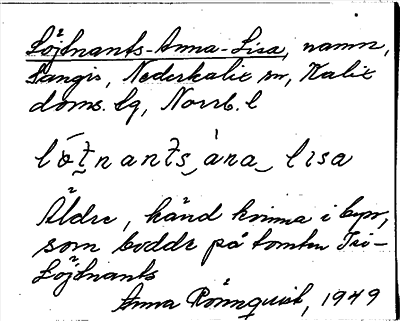 Löjtnants-Anna-Lisa, namn,
Sangis, Nederkalix sn, Kalix
doms. lg, Norrb. l
Äldre, känd kvinna i byn,
som bodde på tomten Fri-
Löjtnants
Anna Rönnquist, 1949